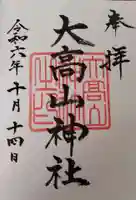 奉拝
大高山神社
令和六年十月十四日